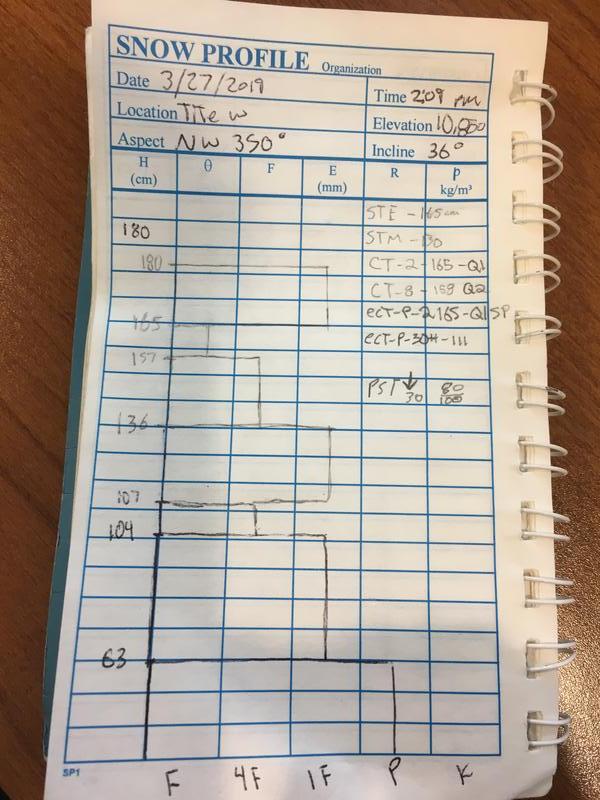 SNOW PROFILE Organization
Date 3/27/2019 Time 2:09 PM
Location TTe w Elevation 10,850
Aspect NW 350° Incline 36°
H (cm) θ F E (mm) R ρ kg/m³
STE - 165cm
180 STM - 130
180 CT-2 - 165 - Q1
CT-8 - 159 Q2
ECT-P-2 165-Q1 SP
165 ECT-P-30# - 111
157
PST ↓ 30 80/100
136
107
104
63
SP1 F 4F 1F P K